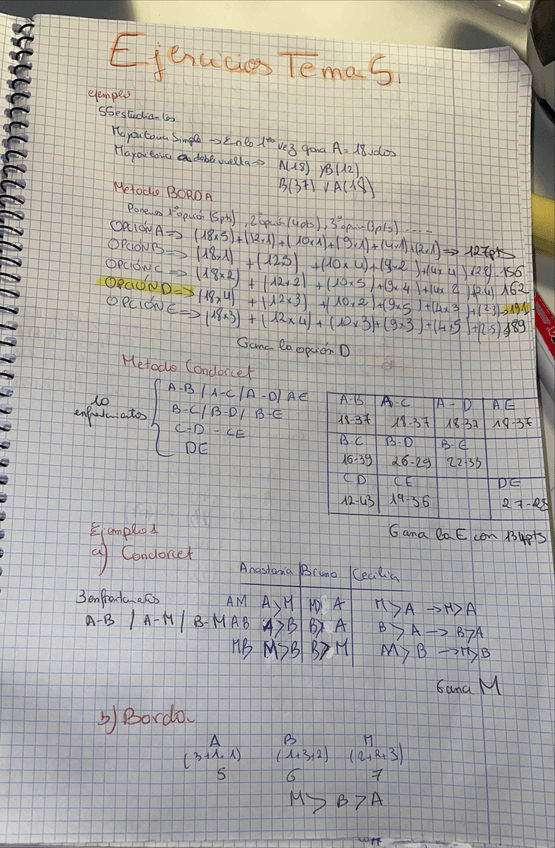 Ejercicios Tema 5.
ejemplo
55 estudiantes
Mayoritaria Simple → En la 1ra vez gana A = 18 votos
Mayoritaria doble vuelta → A(18) y B(12)
B(37) y A(18)
Metodo BORDA
Ponemos 1ª opción (5pts), 2ª opción (4pts), 3ª opción (3pts) ....
OPCIÓN A ⇒ (18x5) + (12x1) + (10x1) + (9x1) + (4x1) + (2x1) ⇒ 127pts
OPCIÓN B ⇒ (18x1) + (12·5) + (10x4) + (9x2) + (4x4) + (2·2) 156
OPCIÓN C ⇒ (18x2) + (12x2) + (10x5) + (9x4) + (4x2) + (2·4) 162
OPCIÓN D ⇒ (18x4) + (12x3) + (10x2) + (9x5) + (4x3) + (2·3) → 191
OPCIÓN E ⇒ (18x3) + (12x4) + (10x3) + (9x3) + (4x5) + (2·5) 189
Gana la opción D
Metodo Condorcet
10 enfrentamientos
A-B / A-C / A-D / AE
B-C / B-D / B-E
C-D - CE
DE
A-B A-C A-D AE
18-37 18-37 18-37 18-37
B-C B-D B-E
16-39 26-29 22-33
CD CE DE
12-43 19-36 27-28
Gana la E con 134pts
Ejemplo 1
a) Condorcet
Anastasia Bruno Cecilia
3 enfrentamientos AM A>M M> A M>A → M>A
A-B / A-M / B-M AB A>B B> A B>A → B>A
MB M>B B>M M>B → M>B
Gana M
b) Borda
A B M
(3+1+1) (1+3+2) (2+2+3)
5 6 7
M > B > A